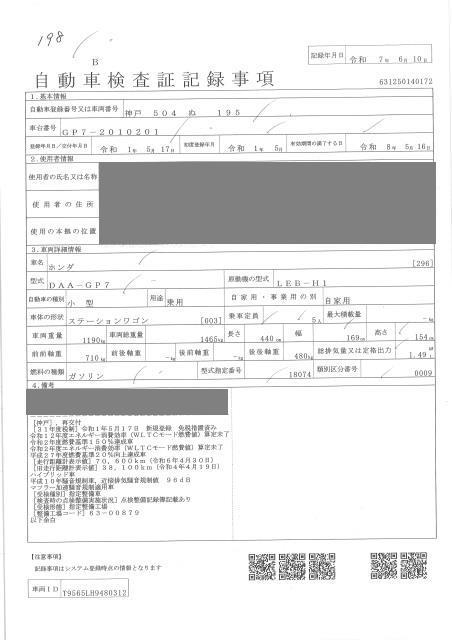 198
B
記録年月日 令和 7年 6月10日
自動車検査証記録事項
631250140172
1.基本情報
自動車登録番号又は車両番号 神戸 504 ぬ 195
車台番号 GP7-2010201
登録年月日/交付年月日 令和 1年 5月17日 初度登録年月 令和 1年 5月 有効期間の満了する日 令和 8年 5月16日
2.使用者情報
使用者の氏名又は名称
使用者の住所
使用の本拠の位置
3.車両詳細情報
車名 ホンダ [296]
型式 DAA-GP7 原動機の型式 LEB-H1
自動車の種別 小型 用途 乗用 自家用・事業用の別 自家用
車体の形状 ステーションワゴン [003] 乗車定員 5人 最大積載量 -kg
車両重量 1190kg 車両総重量 1465kg 長さ 440cm 幅 169cm 高さ 154cm
前前軸重 710kg 前後軸重 -kg 後前軸重 -kg 後後軸重 480kg 総排気量又は定格出力 1.49L
燃料の種類 ガソリン 型式指定番号 18074 類別区分番号 0009
4.備考
[神戸],再交付
[31年度税制]令和1年5月17日 新規登録 免税措置済み
令和12年度エネルギー消費効率(WLTCモード燃費値)算定未了
令和2年度燃費基準150%達成車
令和2年度エネルギー消費効率(WLTCモード燃費値)算定未了
平成27年度燃費基準20%向上達成車
[走行距離計表示値]70,600km(令和6年4月30日)
[旧走行距離計表示値]38,100km(令和4年4月19日)
ハイブリッド車
平成10年騒音規制車,近接排気騒音規制値 96dB
マフラー加速騒音規制適用車
[受検種別]指定整備車
[検査時の点検整備実施状況]点検整備記録簿記載あり
[受検形態]指定整備工場
[整備工場コード]63-00879
以下余白
[注意事項]
記録事項はシステム登録時点の情報となります
車両ID T9565LH9480312